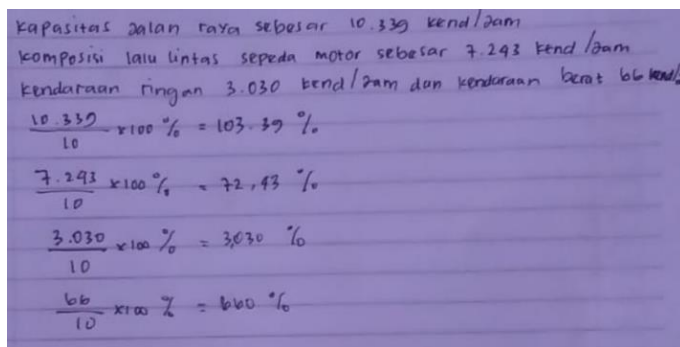 Kapasitas Jalan raya sebesar 10.339 kend/Jam
komposisi lalu lintas sepeda motor sebesar 7.243 kend/Jam
kendaraan ringan 3.030 kend/Jam dan kendaraan berat 66 kend/
10.339/10 x 100 % = 103.39 %
7.243/10 x 100 % = 72,43 %
3.030/10 x 100 % = 3,030 %
66/10 x 100 % = 660 %